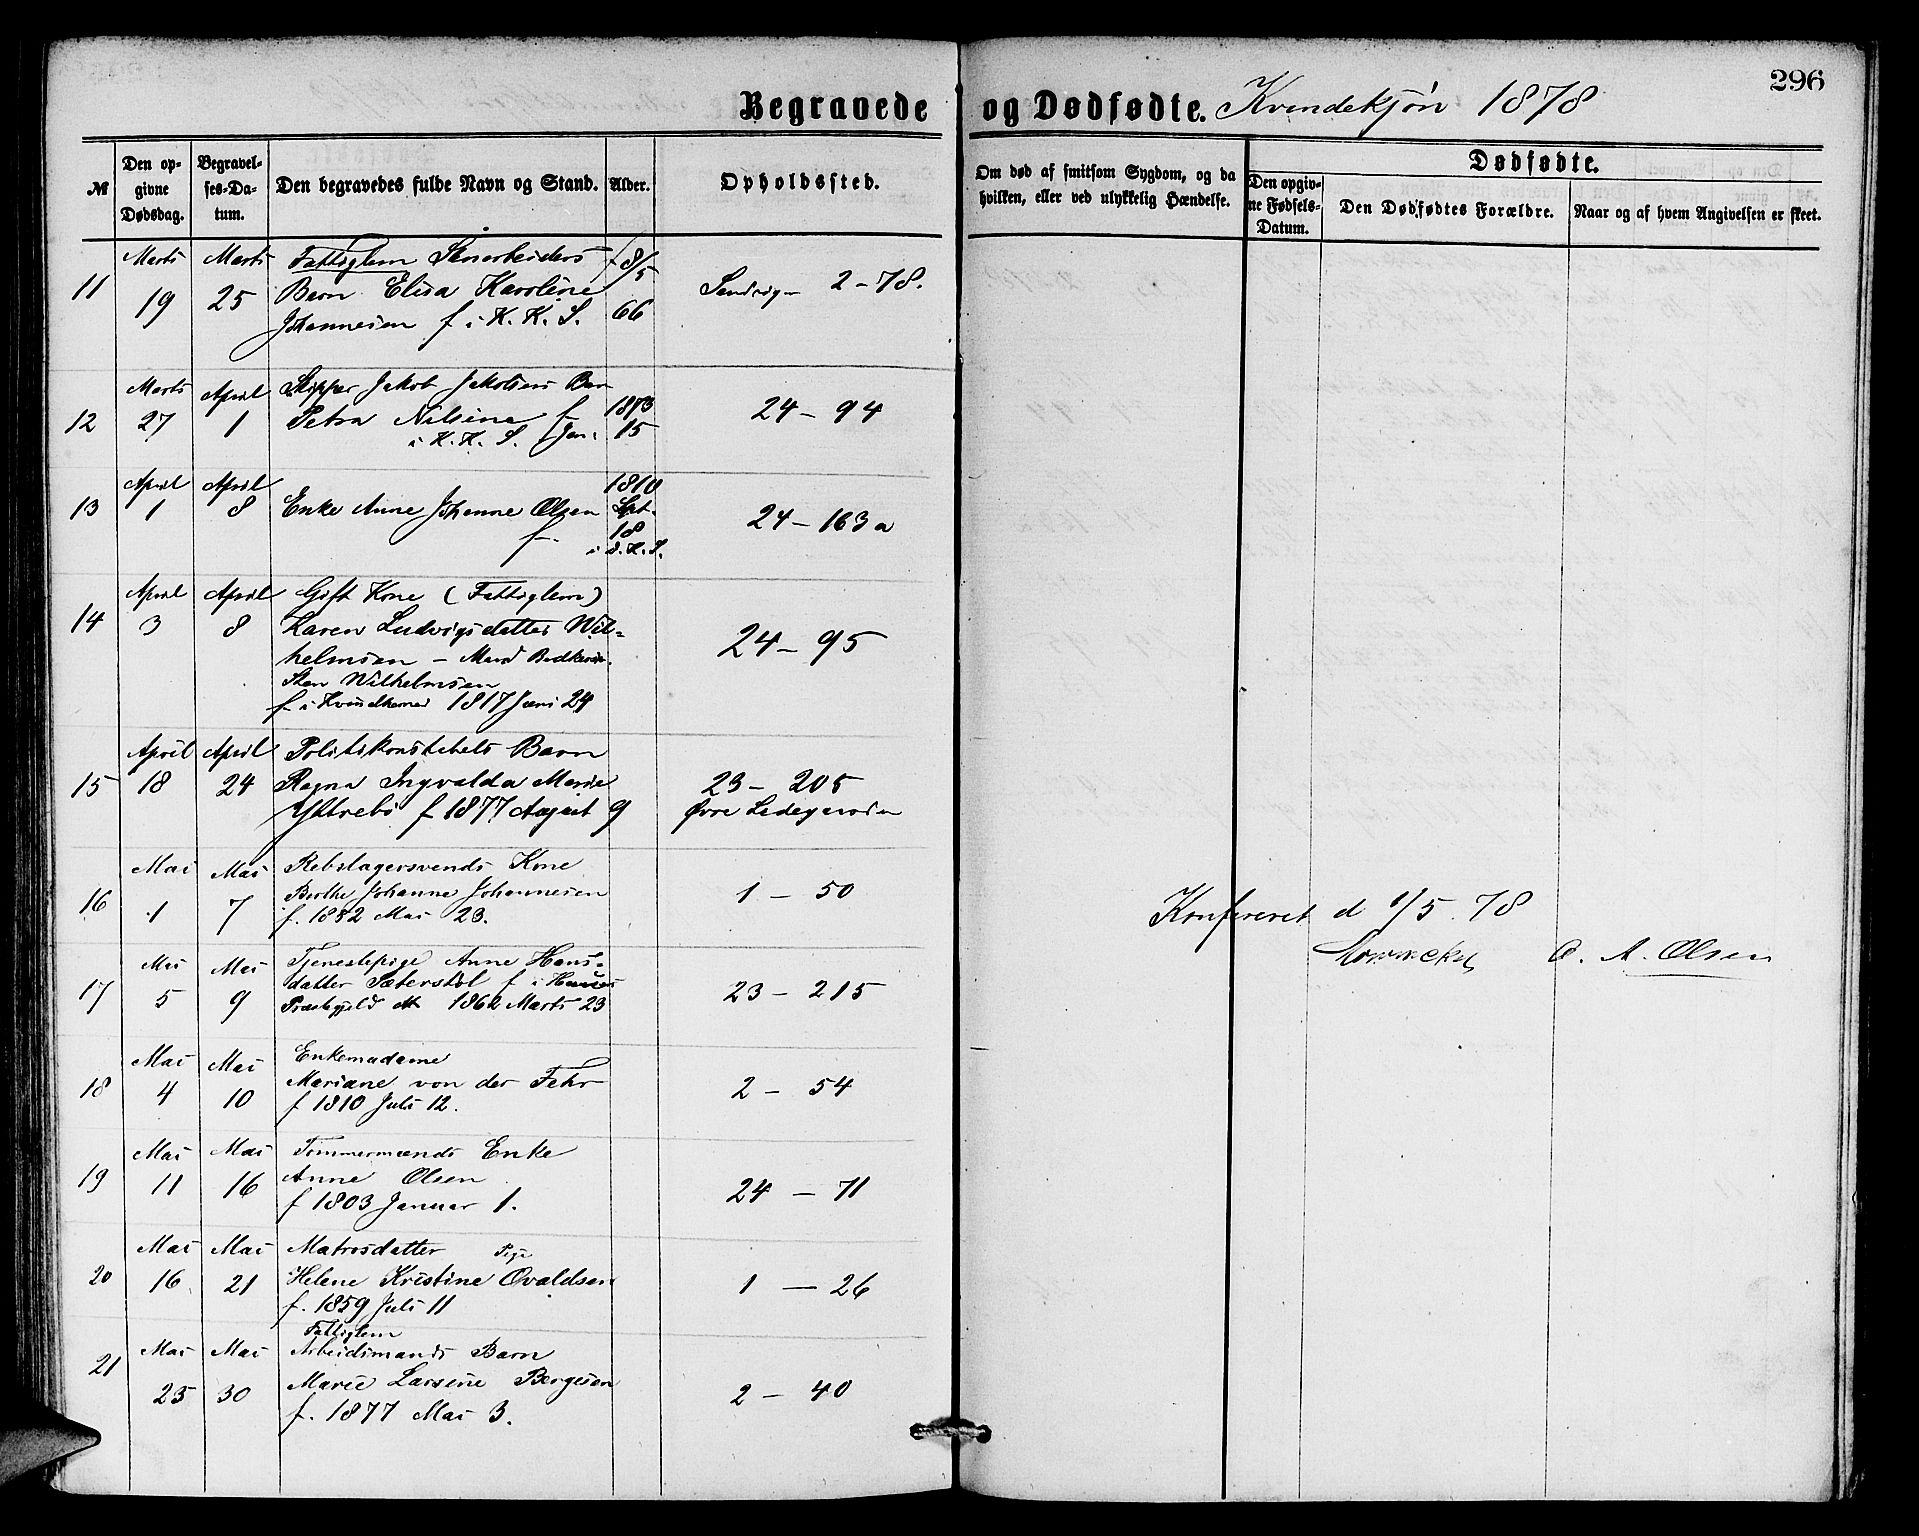 296
Begravede og Dødfødte. Kvindekjøn 1878
№
Den opgivne Dødsdag.
Begravelses-Datum.
Den begravedes fulde Navn og Stand.
Alder.
Opholdssted.
Om død af smitsom Sygdom, og da hvilken, eller ved ulykkelig Hændelse.
Dødfødte.
Den opgivne Fødsels-Datum.
Den Dødfødtes Forældre.
Naar og af hvem Angivelsen er skeet.
11 Marts 19 Marts 25
Fattiglem
Barn Elisa Karoline
Johannesen f i K. K. S.
8/5 66
Sandvigen 2-78.
12 Marts 27 April 1
Skipper Jakob Jakobsens Barn
Petra Nilsine f
i K. K. S. Jan.
1873
15
24 - 94
13 April 1 April 8
Enke Anne Johanne Olsen
f
1810
Sept.
18
24 - 163a
14 April 3 April 8
Gift Kone (Fattiglem)
Karen Ludvigsdatter Wil-
helmsen - Mand
Sten Wilhelmsen
f i Kvindherred 1817 Juni 24
24 - 95
15 April 18 April 24
Politikonstabels Barn
Ragna Ingvalda Marie
Yttrebø f 1877 August 9
23 - 205
Øvre
16 Mai 1 Mai 7
Rebslagersvends Kone
Berthe Johanne Johannesen
f. 1852 Mai 23.
1 - 50
Konfereret d 1/5 78
C. A. Olsen
17 Mai 5 Mai 9
Tjenestepige Anne Hans-
datter Sæterstøl f i
Præstegjeld 1862 Marts 23
23 - 215
18 Mai 4 Mai 10
Enkemadame
Mariane von der Fehr
f 1810 Juli 12.
2 - 54
19 Mai 11 Mai 16
Tømmermands Enke
Anne Olsen
f 1803 Januar 1.
24 - 71
20 Mai 16 Mai 21
Matrosdatter Pige
Helene Kristine Ovaldsen
f. 1859 Juli 11
1 - 26
21 Mai 25 Mai 30
Fattiglem
Arbeidsmands Barn
Marie Larsine Børgesen
f. 1877 Mai 3.
2 - 40